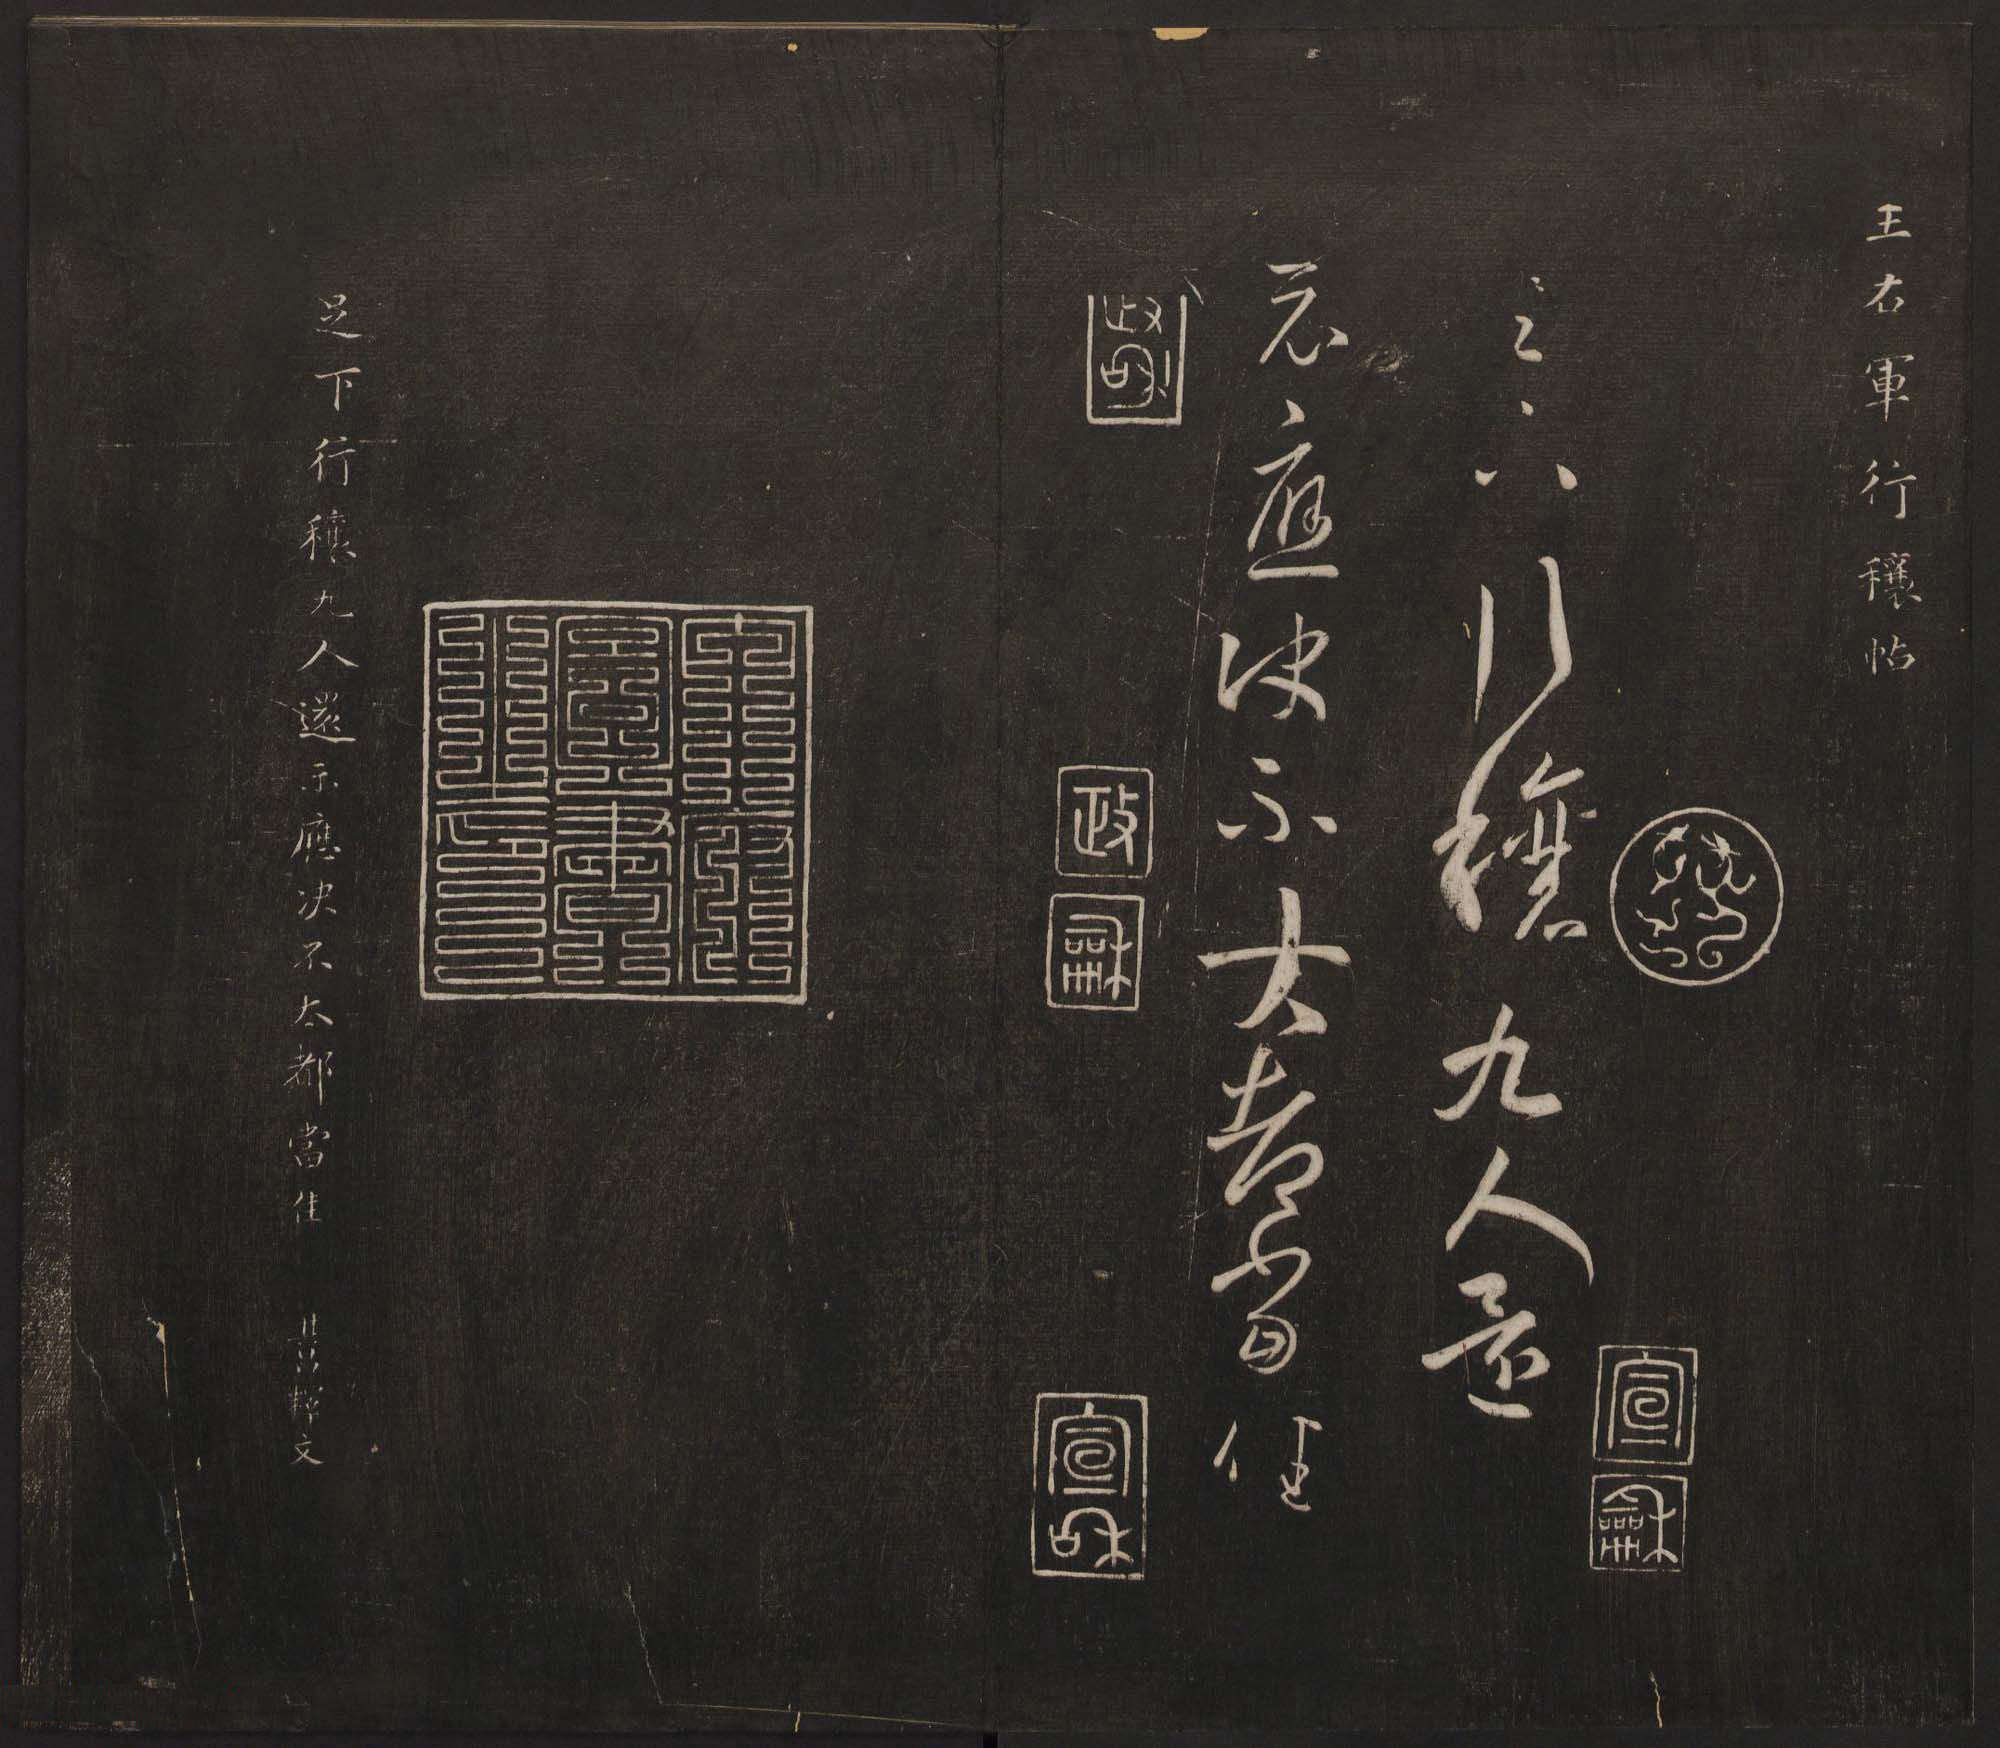 王右軍行穰帖
足下行穰九人還
示應決不大都當佳
政和
宣和
政
龢
宣
龢
足下行穰九人還示應決不大都當佳 其昌釋文